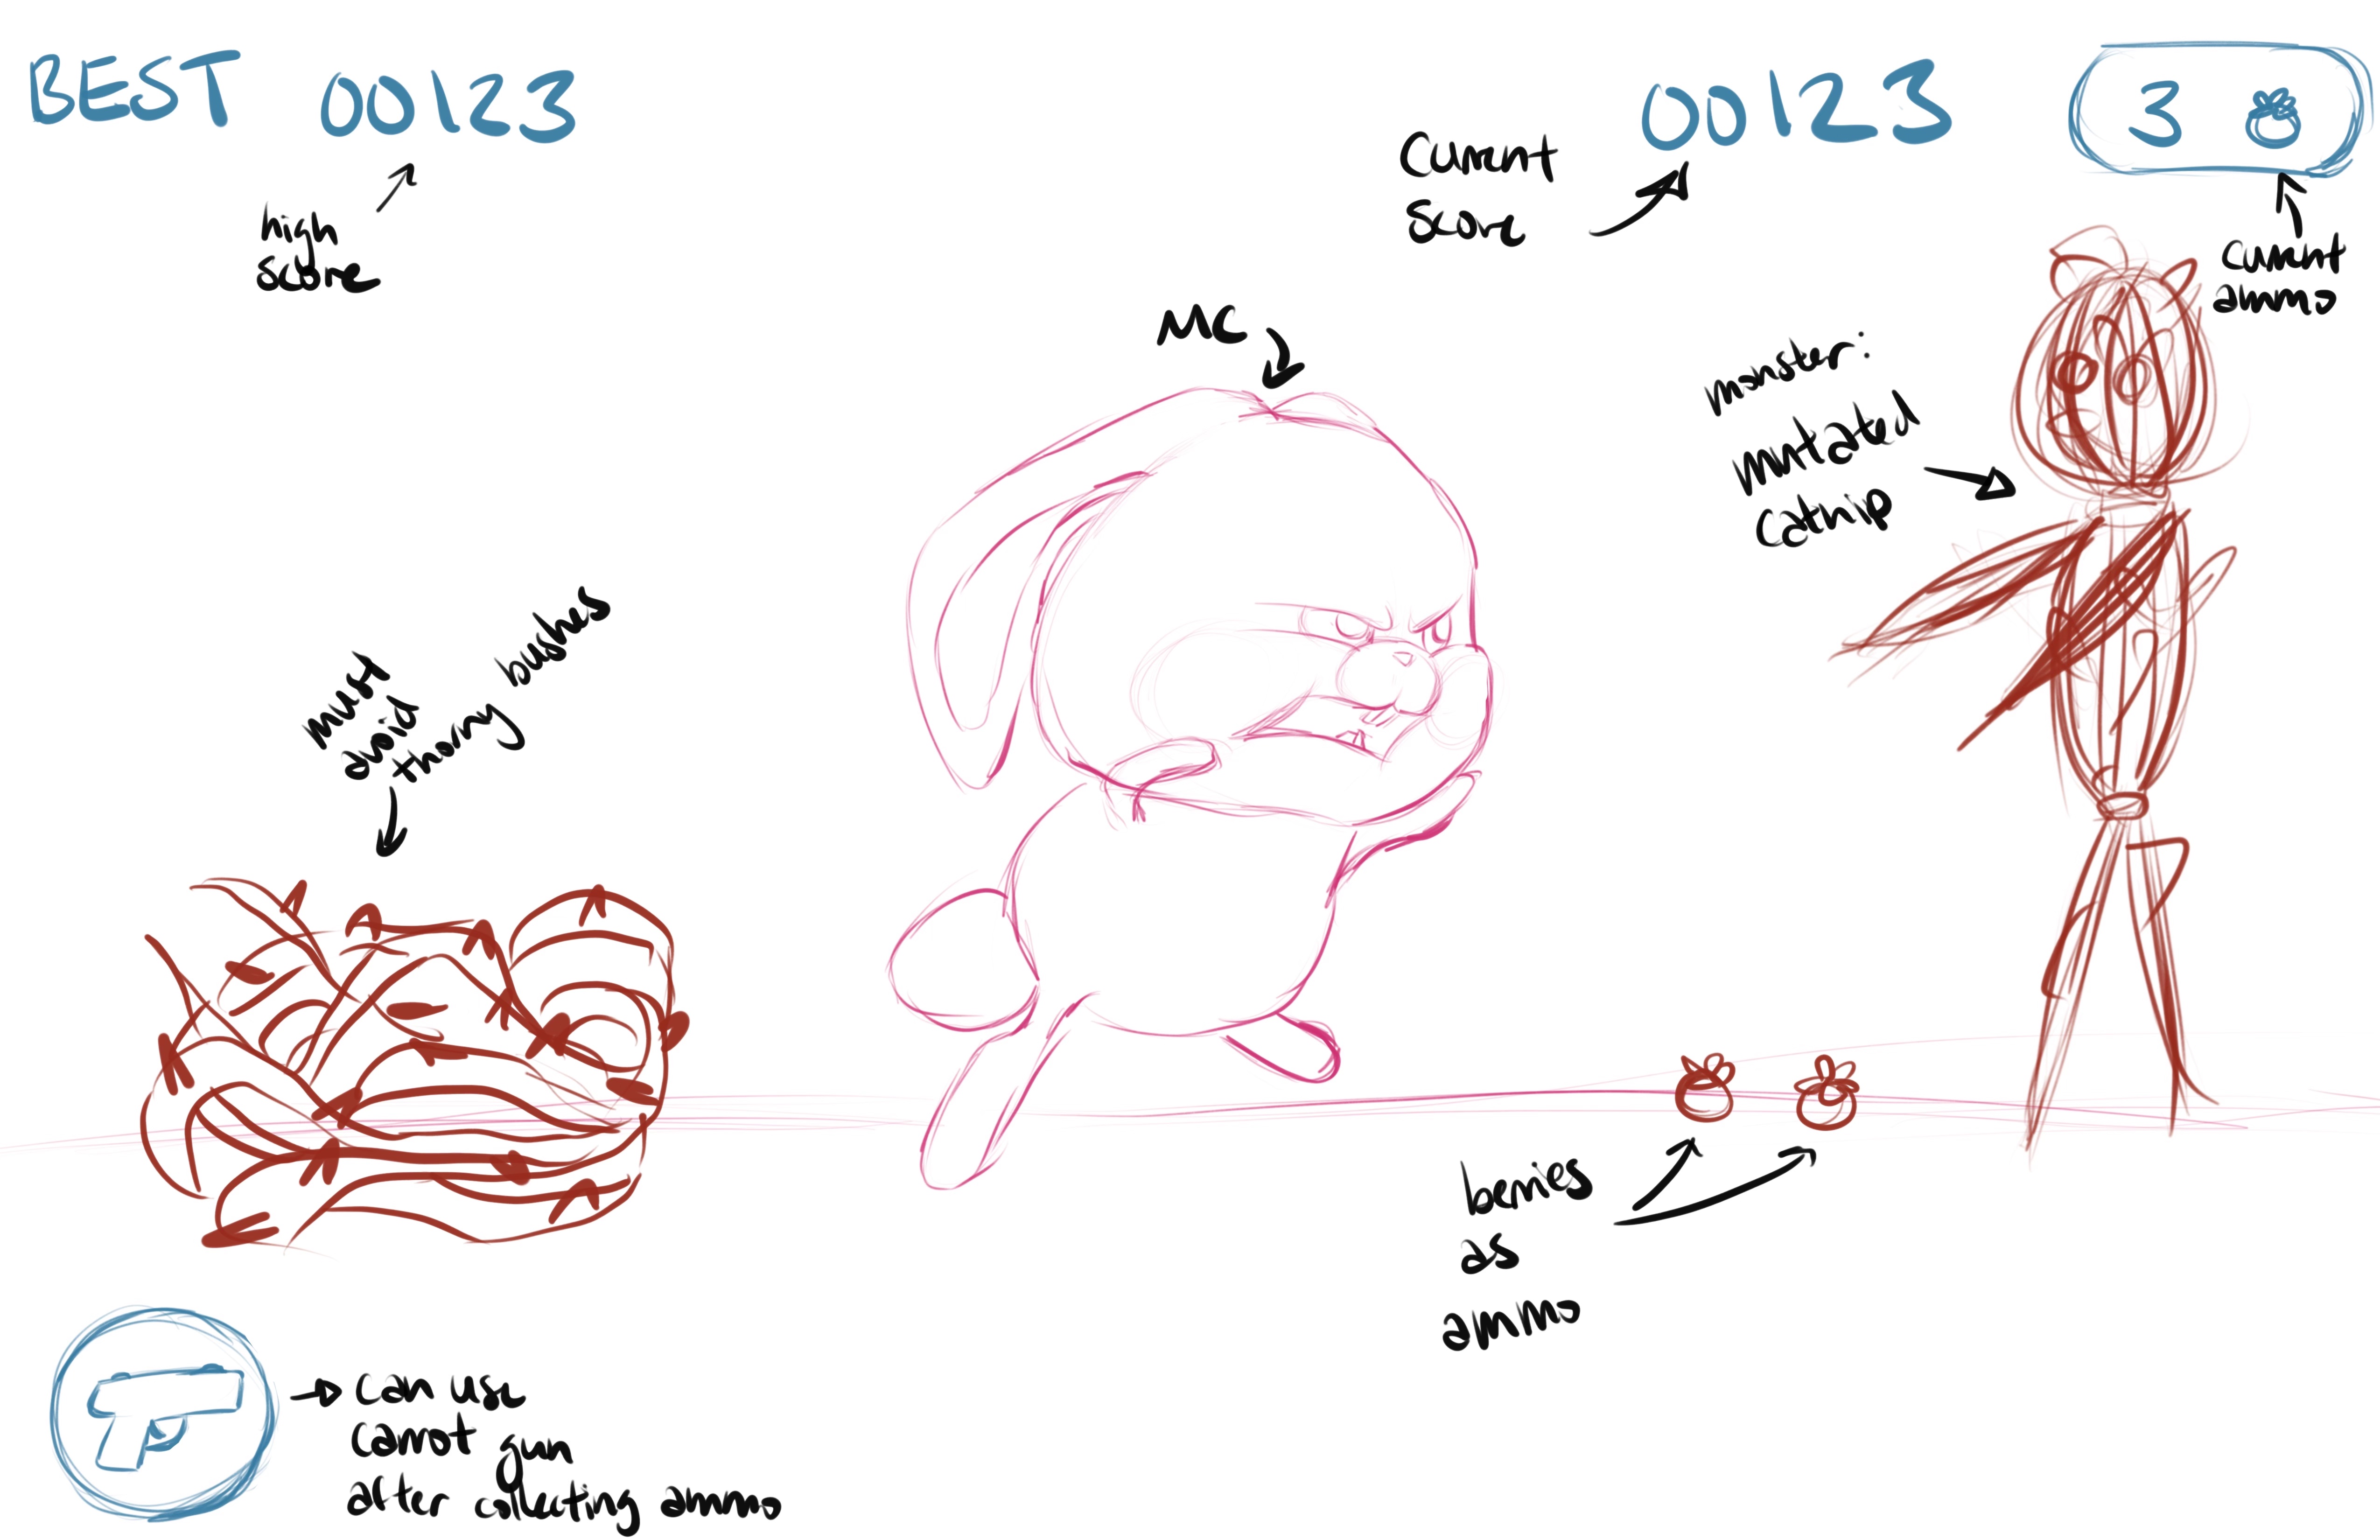 BEST 00123
00123
3
high
score
Current
Score
current
ammo
MC
monster:
mutated
catnip
must
avoid
thorny bushes
berries
as
ammo
can use
carrot gun
after collecting ammo